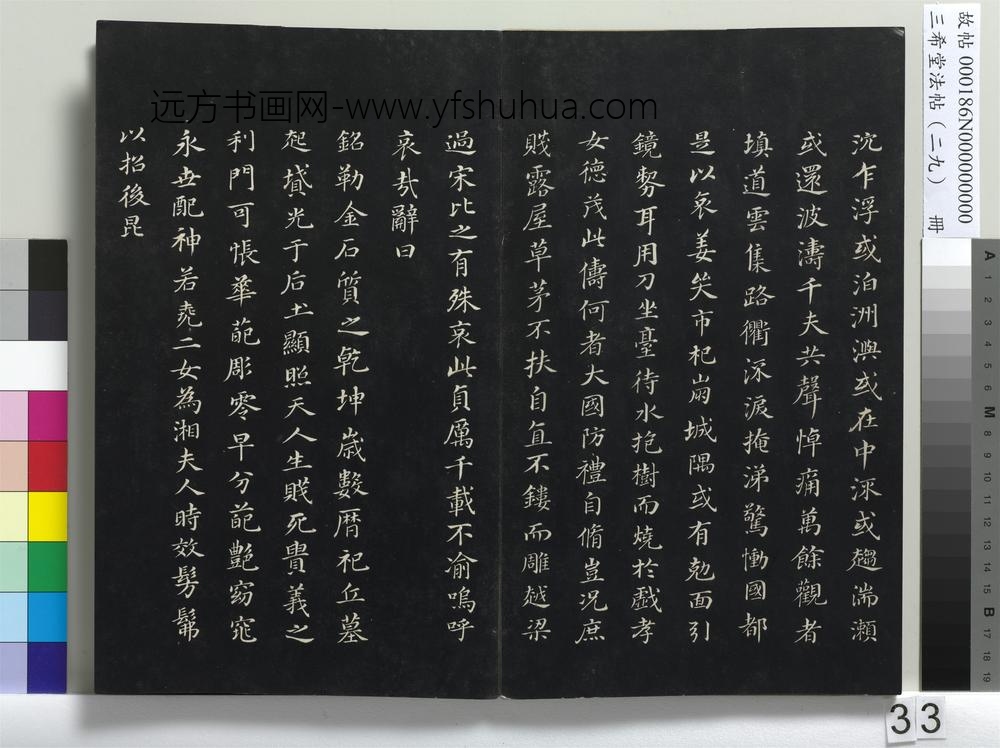 沉乍浮或泊洲澳或在中流或趨湍瀬
或還波濤千夫共聲悼痛萬餘觀者
填道雲集路衢泣淚掩涕驚慟國都
是以哀姜哭市杞崩城隅或有尅面引
鏡剺耳用刀坐臺待水抱樹而燒於戲孝
女德茂此儔何者大國防禮自脩豈况庶
賤露屋草茅不扶自直不鏤而雕越梁
過宋比之有殊哀此貞厲千載不渝嗚呼
哀哉辭曰
銘勒金石質之乾坤歲數曆祀丘墓
起墳光于后土顯照天人生賤死貴義之
利門可悵華葩彫零早分葩艷窈窕
永世配神若堯二女為湘夫人時效髣髴
以招後昆
远方书画网-www.yfshuhua.com
故帖 000186N000000000
三希堂法帖(二九) 冊
A 1 2 3 4 5 6 M 8 9 10 11 12 13 14 15 B 17 18 19
33